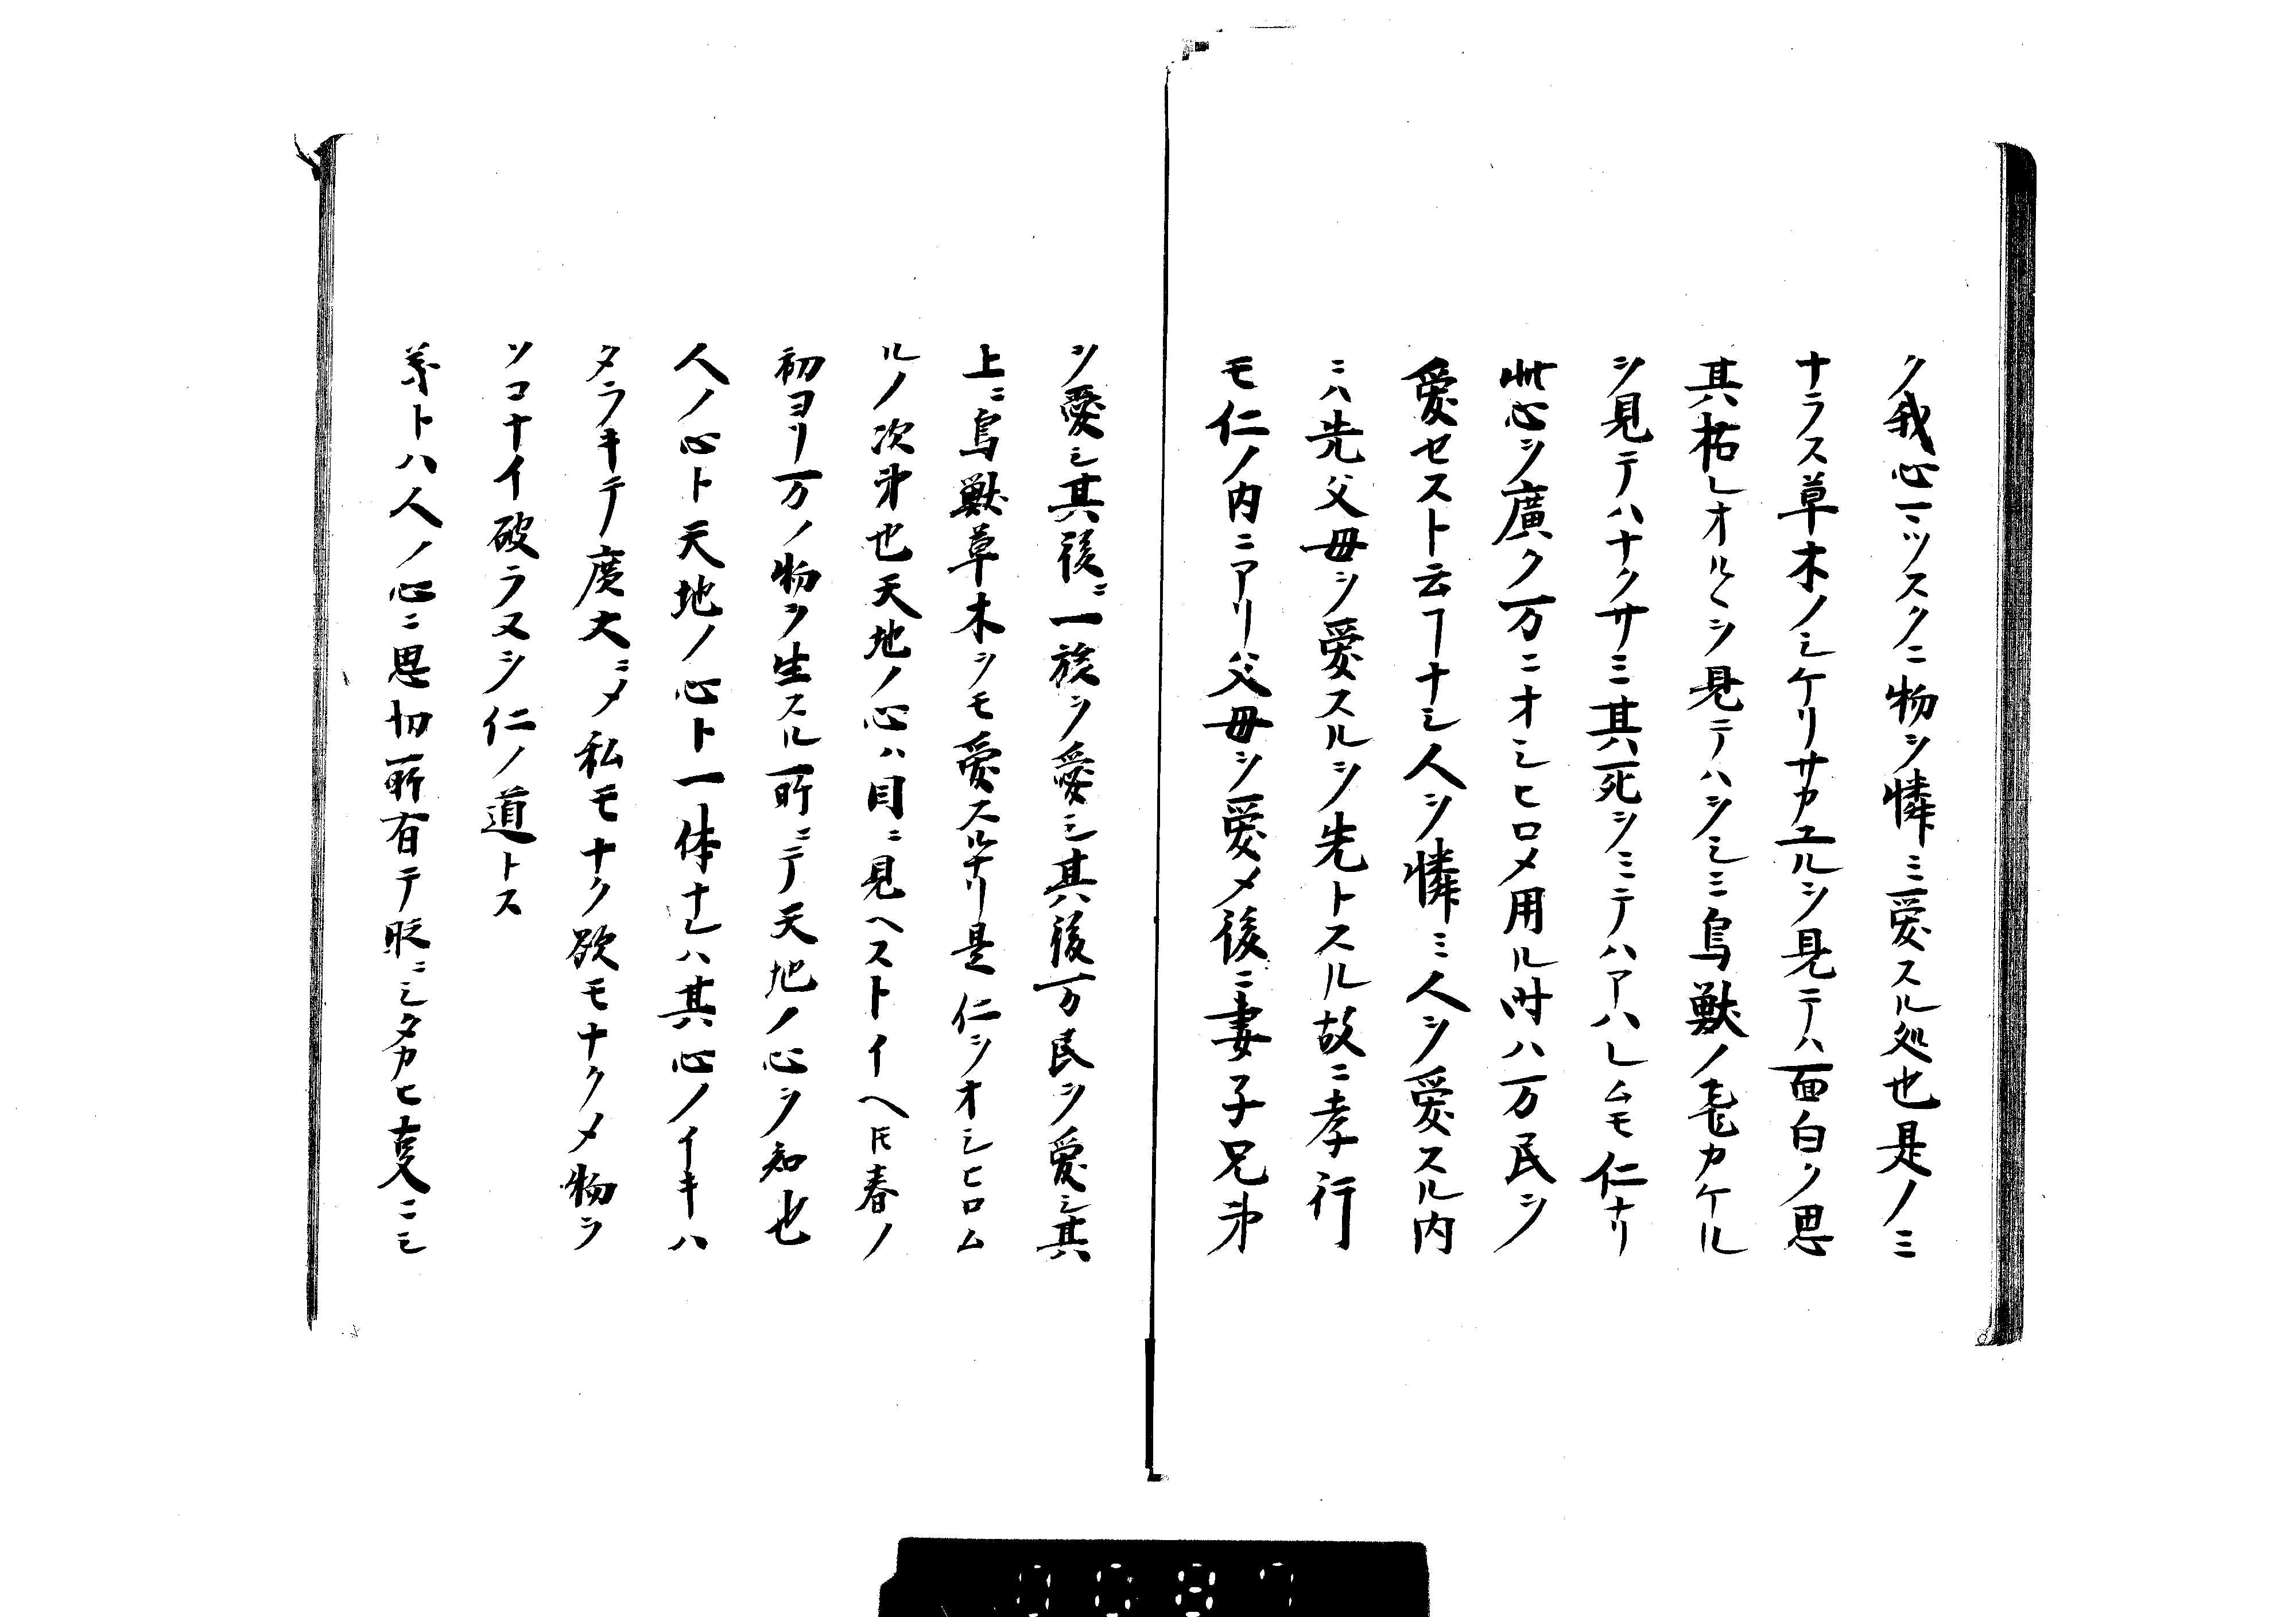 ク我心一ミツスクニ物ヲ憐ミ愛スル処也是ノミ
ナラス草木ノシケリサカエルヲ見テハ面白ク思
其枯レオルヽヲ見テハヲシミ鳥獣ノ毛カケル
ヲ見テハナクサミ其死ヲミテハアハレムモ仁ナリ
此心ヲ廣ク万ニオシヒロメ用ル時ハ万民ヲ
愛セスト云ヿナシ人ヲ憐ミ人ヲ愛スル内
ニハ先父母ヲ愛スルヲ先トスル故ニ孝行
モ仁ノ内ニアリ父母ヲ愛メ後ニ妻子兄弟
ヲ愛シ其後ニ一族ヲ愛シ其後万民ヲ愛シ其
上ニ鳥獣草木ヲモ愛スルナリ是仁ヲオシヒロム
ルノ次第也天地ノ心ハ目ニ見ヘストイヘ𪜈春ノ
初ヨリ万ノ物ヲ生スル所ニテ天地ノ心ヲ知也
人ノ心ト天地ノ心ト一体ナレハ其心ノイキハ
タラキテ廣大ニメ私モナク欲モナクメ物ヲ
ソコナイ破ラヌヲ仁ノ道トス
義トハ人ノ心ニ思切所有テ ニシタカヒ ニシ